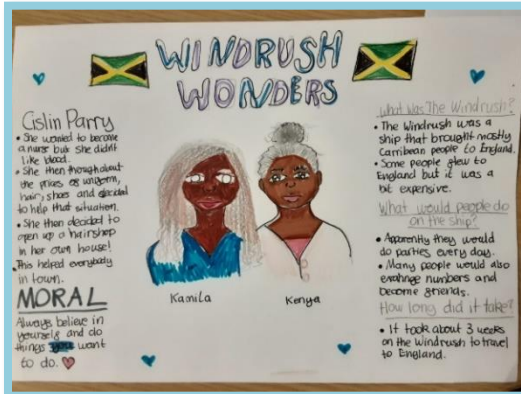 WINDRUSH
WONDERS
Cislin Parry
• She wanted to become
a nurse but she didn't
like blood.
• She then thought about
the prices of uniform,
hair, shoes and decided
to help that situation.
• She then decided to
open up a hairshop
in her own house!
• This helped everybody
in town.
MORAL
Always believe in
yourself and do
things you want
to do.
Kamila
Kenya
What was The Windrush?
• The Windrush was a
ship that brought mostly
Carribean people to England.
• Some people flew to
England but it was a
bit expensive.
What would people do
on the ship?
• Apparently they would
do parties every day.
• Many people would also
exchange numbers and
become friends.
How long did it take?
• It took about 3 weeks
on the Windrush to travel
to England.